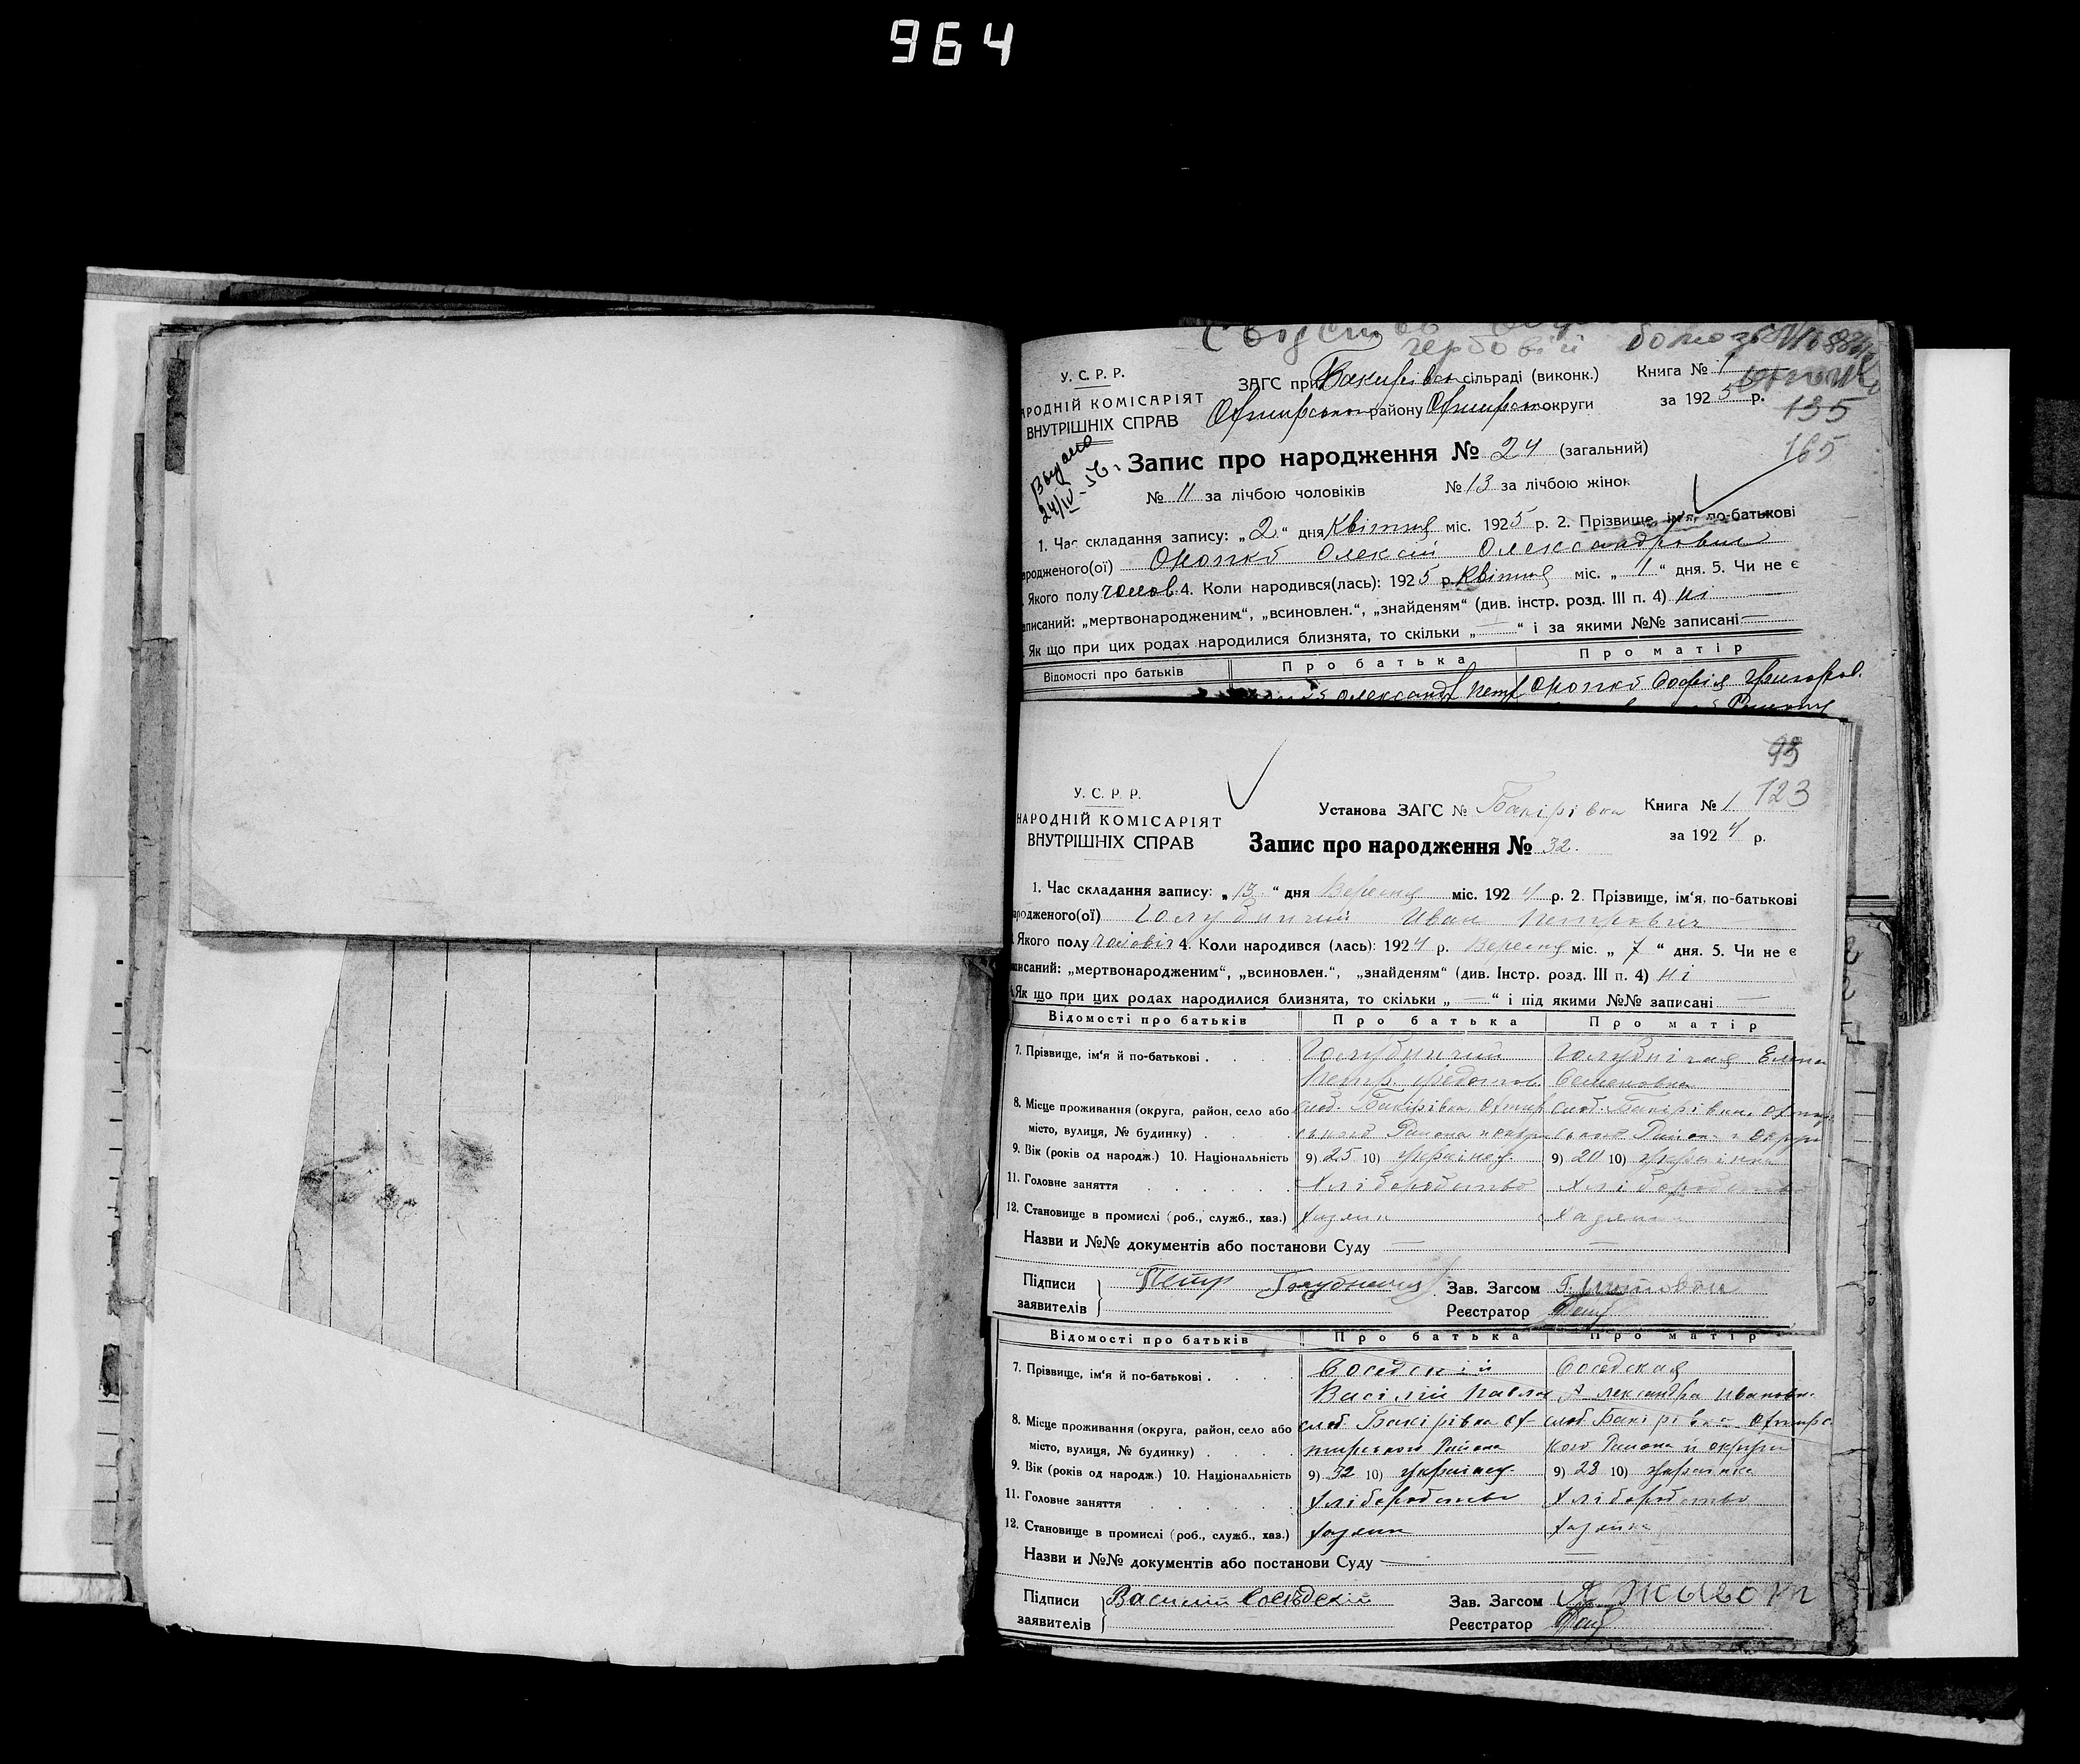 964
У. С. Р. Р.
АРОДНІЙ КОМІСАРІЯТ
ВНУТРІШНІХ СПРАВ
ЗАГС при Бакирівск сільраді (виконк.)
Охтирському району Охтирськ округи
Книга № 1
за 1925 р.
135
165
Выдано
24/IV-56 г.
Запис про народження № 24 (загальний)
№ 11 за лічбою чоловіків № 13 за лічбою жінок
1. Час складання запису: „2“ дня Квітня міс. 1925 р. 2. Прізвище, ім'я, по-батькові
ародженого(ої) Олексій Олександрович
Якого полу чолов. 4. Коли народився(лась): 1925 р. Квітня міс. „1“ дня. 5. Чи не є
аписаний: „мертвонародженим“, „всиновлен.“, „знайденям“ (див. інстр. розд. III п. 4) ні
Як що при цих родах народилися близнята, то скільки „—“ і за якими №№ записані —
Відомості про батьків Про батька Про матір
Олександр Петр Софія Григоров.
93
123
У. С. Р. Р.
НАРОДНІЙ КОМІСАРІЯТ
ВНУТРІШНІХ СПРАВ
Установа ЗАГС № Бакірівка Книга № 1
за 1924 р.
Запис про народження № 32.
1. Час складання запису: „13“ дня Вересня міс. 1924 р. 2. Прізвище, ім'я, по-батькові
ародженого(ої) Голубничий Иван Петрович
Якого полу чоловіч 4. Коли народився (лась): 1924 р. Вересня міс. „7“ дня. 5. Чи не є
аписаний: „мертвонародженим“, „всиновлен.“, „знайденям“ (див. Інстр. розд. III п. 4) ні
Як що при цих родах народилися близнята, то скільки „—“ і під якими №№ записані —
Відомості про батьків Про батька Про матір
7. Прізвище, ім'я й по-батькові . Голубничий Голубнічая Елена
Петр. Федотов. Семеновна
8. Місце проживання (округа, район, село або слоб. Бакірівка Охтир слоб. Бакірівка, Охтир
місто, вулиця, № будинку) . ського Района и округи ського Района и округи
9. Вік (років од народж.) 10. Національність 9) 25 10) Українец 9) 20 10) Українка
11. Головне заняття Хліборобство Хліборобство
12. Становище в промислі (роб., служб., хаз.) Хазяин Хазяин
Назви и №№ документів або постанови Суду —
Підписи Петр Голубничий Зав. Загсом
заявителів Реєстратор
Відомості про батьків Про батька Про матір
7. Прізвище, ім'я й по-батькові . Соседскій Соседская
Васілій Павлов Александра Ивановн.
8. Місце проживання (округа, район, село або слоб. Бакірівка Ох- слоб. Бакірівка Охтирс
місто, вулиця, № будинку) . тирського Района кого Района и округи
9. Вік (років од народж.) 10. Національність 9) 32 10) Українец 9) 28 10) Українка
11. Головне заняття Хліборобство Хліборобство
12. Становище в промислі (роб., служб., хаз.) Хазяин Хазяйка
Назви и №№ документів або постанови Суду —
Підписи Василий Соседский Зав. Загсом
заявителів Реєстратор